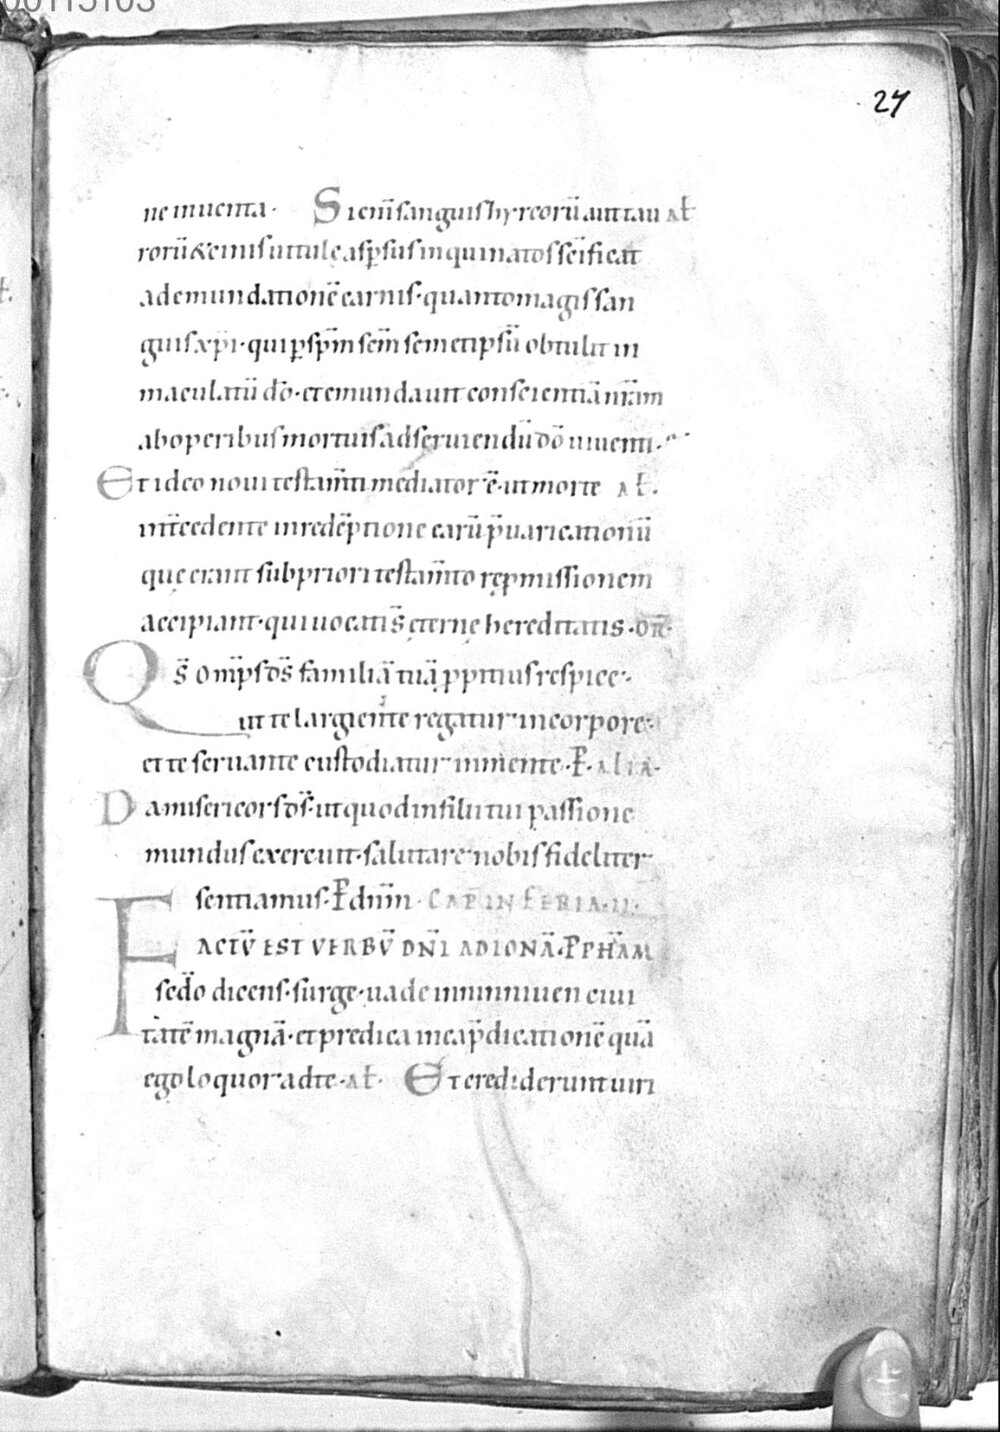 00115103
27
ne inuenta· Si eni̅ sanguis hyrcoru̅ aut tau al̅
roru̅ & cinis uitulę asp̱sus inquinatos sc̅ificat
ad emundatione̅ carnis· quanto magis san
guis xp̅i· qui p̱ sp̅m sc̅m semetipsu̅ obtulit in
maculatu̅ do̅· et emundauit conscientia̅ nr̅am
ab operibus mortuis ad seruiendu̅ do̅ uiuenti·
Et ideo noui testam̅ti mediator e̅· ut morte al̅·
int̅cedente in rede̅ptione earu̅ p̅uaricationu̅
quę erant sub priori testam̅to rep̱missionem
accipiant· qui uocati s̅ ęternę hereditatis· OR̅·
Qs̅ om̅ps ds̅ familia̅ tua̅ ꝓpitius respice·
ut te largiente regatur in corpore·
et te seruante custodiatur in mente· P̅· alia·
Da misericors ds̅· ut quod in filii tui passione
mundus exercuit· salutare nobis fideliter
sentiamus· P̅ dn̅m· CAP̅ IN FERIA· II·
FACTV̅ EST VERBV̅ DN̅I AD IONA̅· P̅PHA̅M
sed̅o dicens· surge· uade in niniuen ciui
tate̅ magna̅· et predica in ea p̅dicatione̅ qua̅
ego loquor ad te· al̅· Et crediderunt uiri